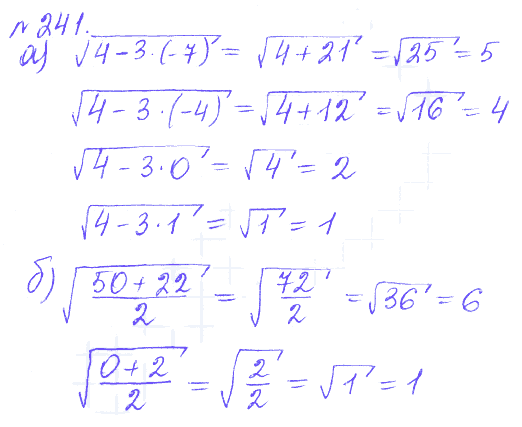 № 241.
а) √(4-3·(-7)) = √(4+21) = √25 = 5
√(4-3·(-4)) = √(4+12) = √16 = 4
√(4-3·0) = √4 = 2
√(4-3·1) = √1 = 1
б) √((50+22)/2) = √(72/2) = √36 = 6
√((0+2)/2) = √(2/2) = √1 = 1